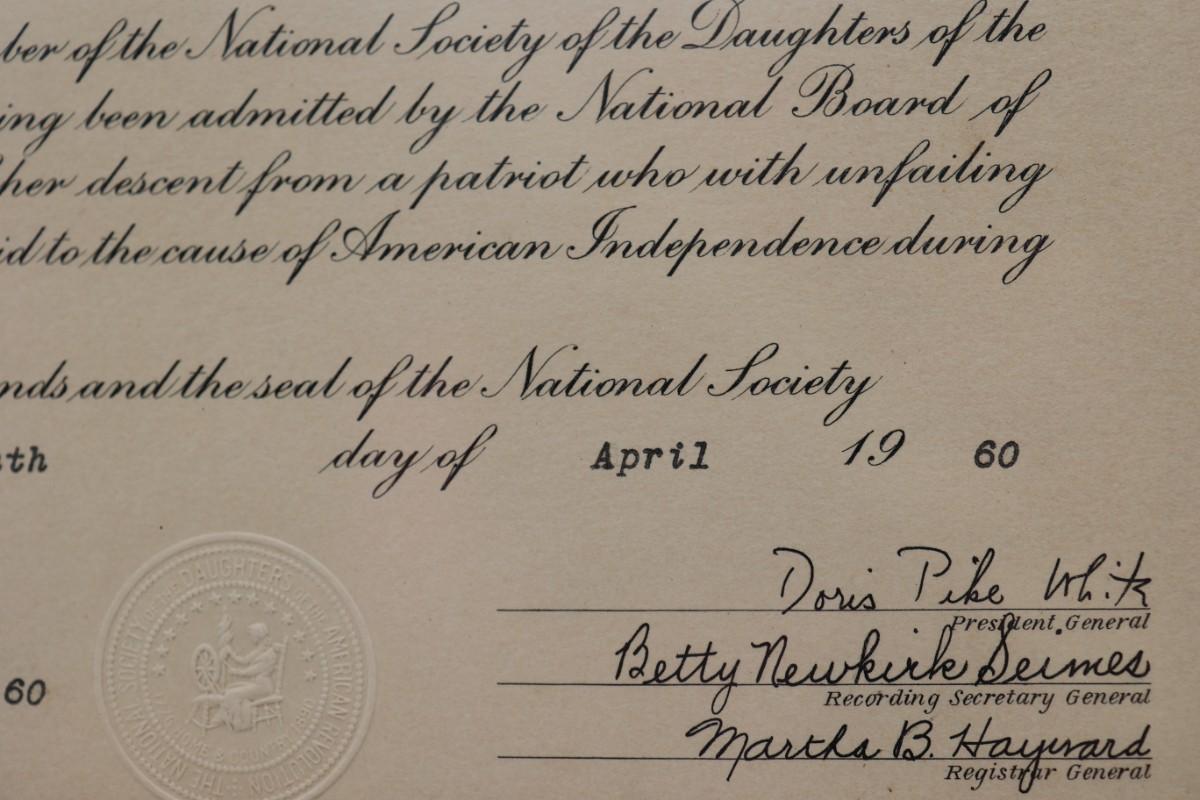 ber of the National Society of the Daughters of the
ing been admitted by the National Board of
her descent from a patriot who with unfailing
id to the cause of American Independence during
nds and the seal of the National Society
th day of April 19 60
Doris Pike White
President General
Betty Newkirk Seimes
Recording Secretary General
60
Martha B. Hayward
Registrar General
THE NATIONAL SOCIETY OF THE DAUGHTERS OF THE AMERICAN REVOLUTION
HOME & COUNTRY